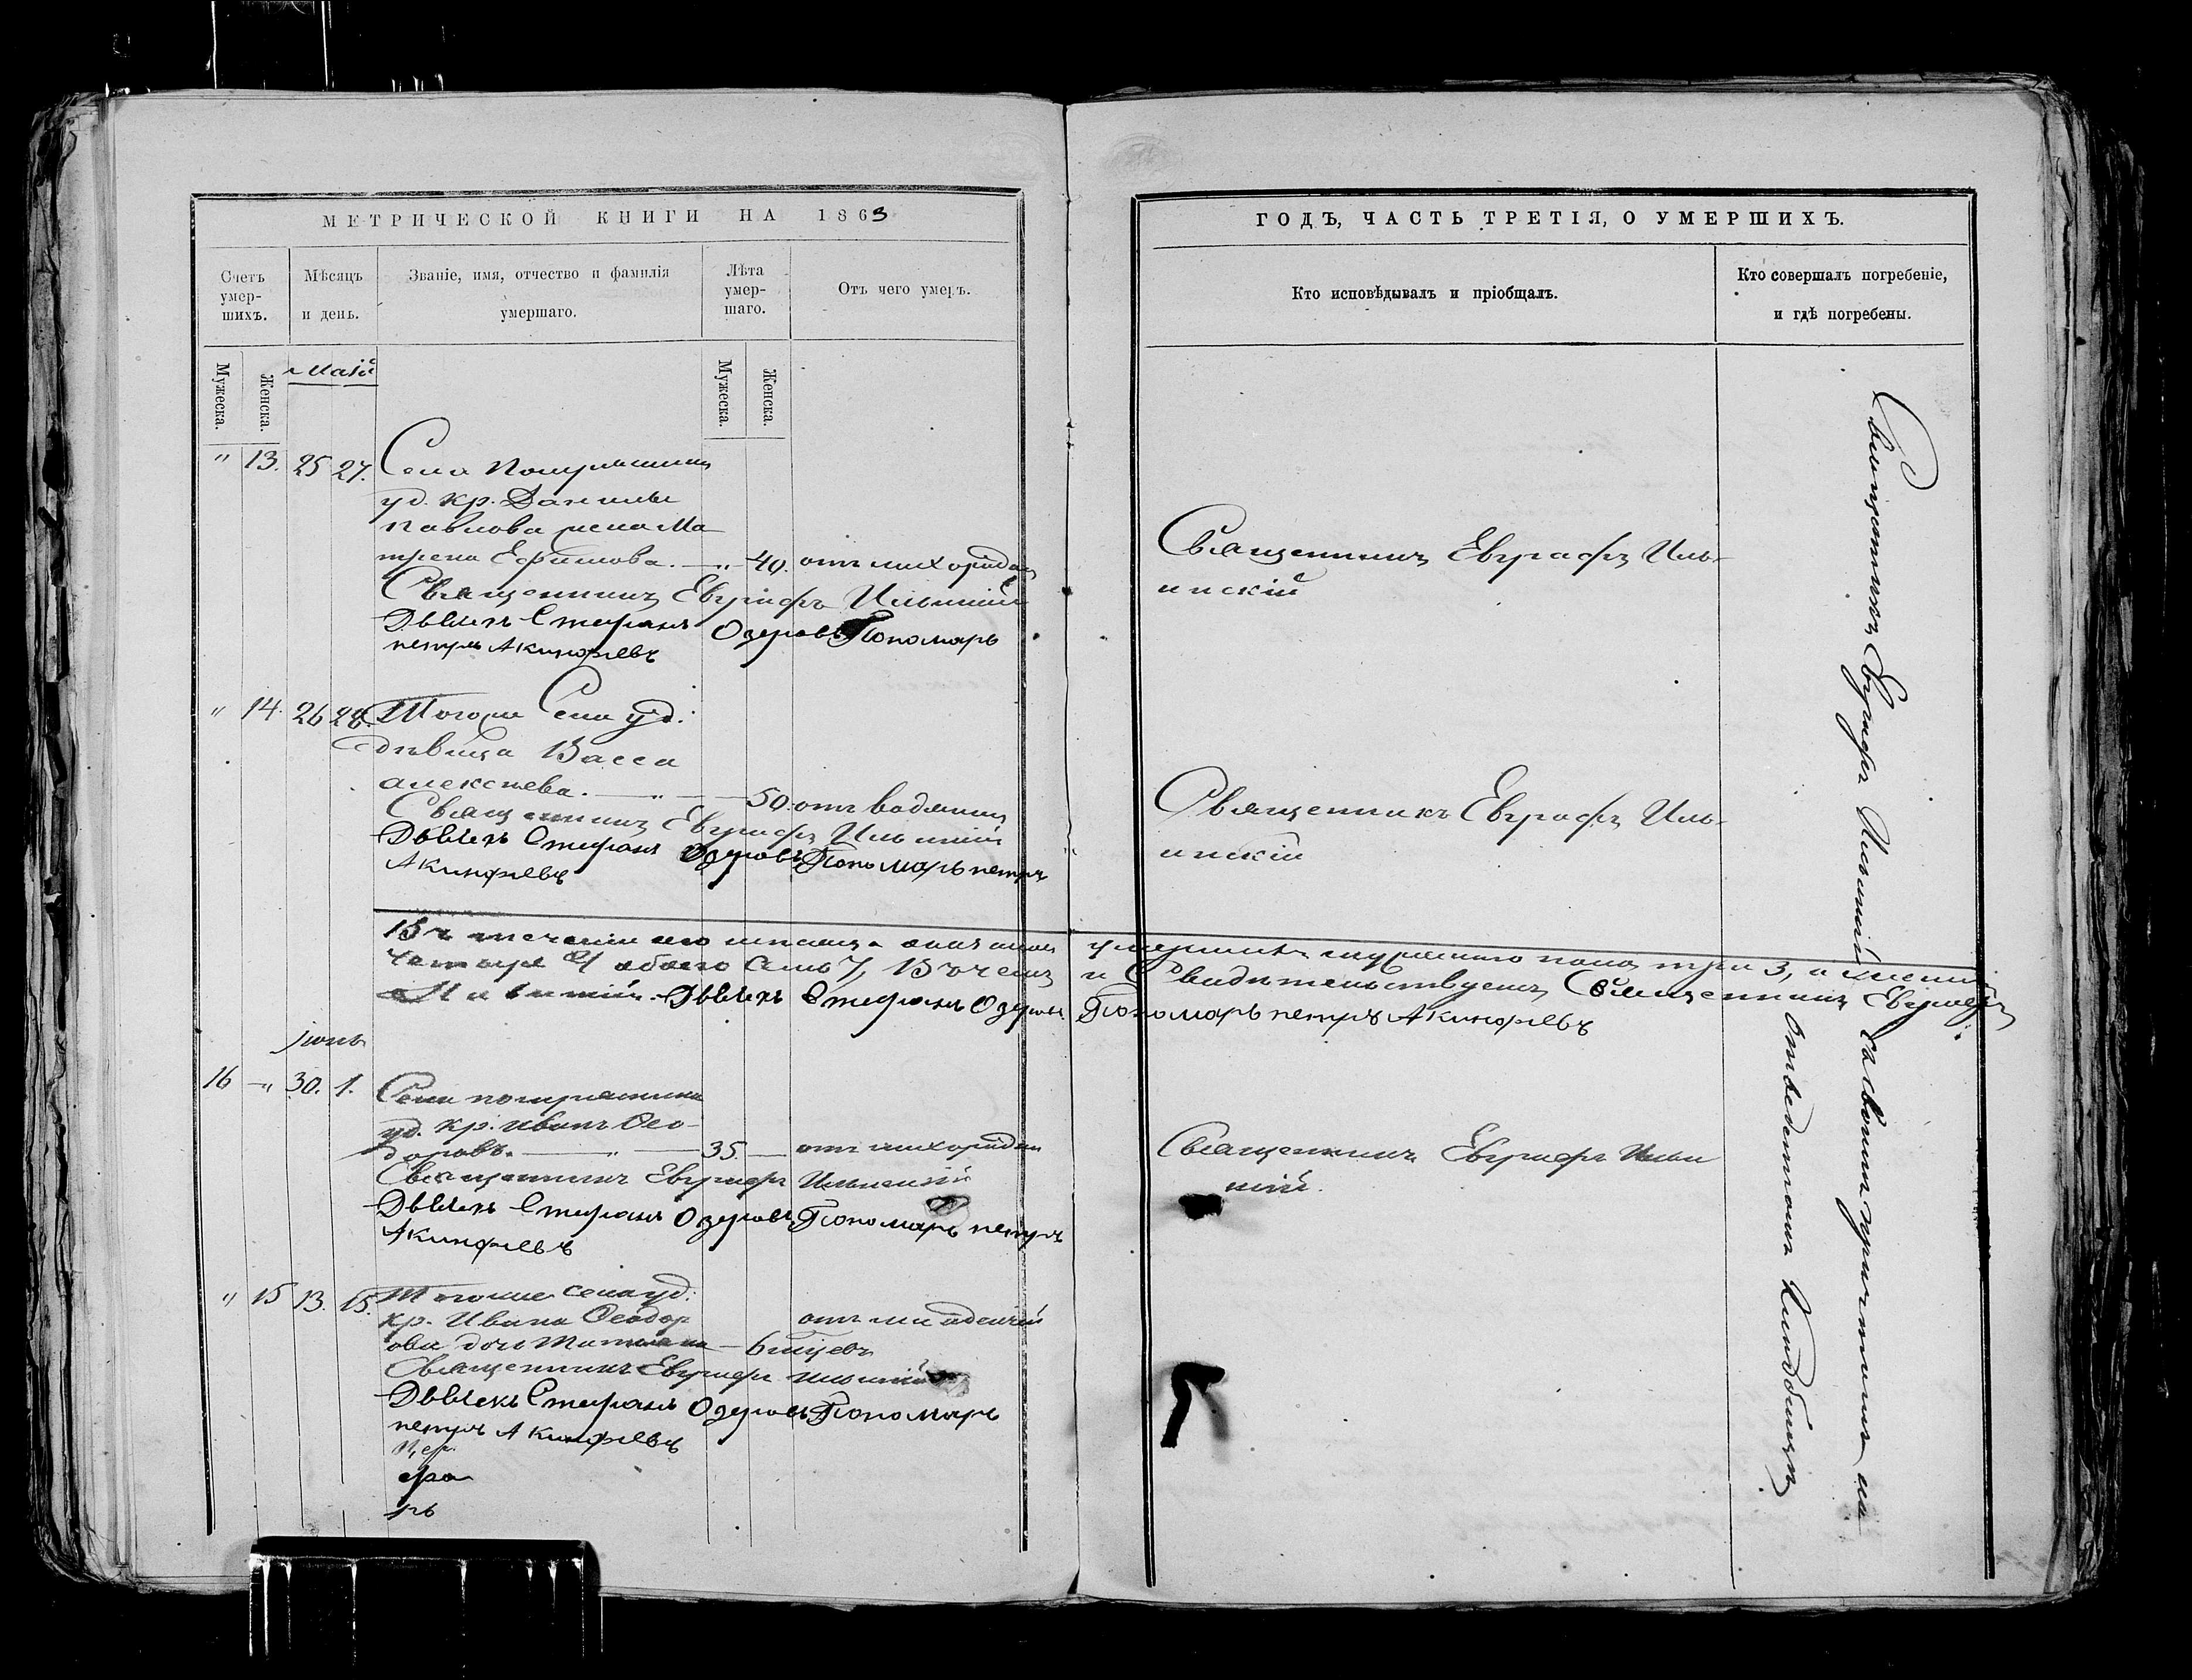 МЕТРИЧЕСКОЙ КНИГИ НА 1863
Счетъ умер-шихъ.
Мѣсяцъ и день.
Званіе, имя, отчество и фамилія умершаго.
Лѣта умер-шаго.
Отъ чего умеръ.
Мужеска.
Женска.
Маій
Мужеска.
Женска.
" 13. 25 27. Села
уд. кр. Данилы
Павлова жена Ма
трена Ефимова. — " — 40. отъ лихорадки
Священникъ Евграфъ Ильинскій
Дьячекъ Стефанъ Озеровъ Пономарь
петръ Акинфіевъ
" 14. 26 28. Тогоже Села уд.
дѣвица Васса
алексѣева. — " — 50. отъ водянки
Священникъ Евграфъ Ильинскій
Дьячекъ Стефанъ Озеровъ Пономарь петръ
Акинфіевъ
Въ теченіи сего мѣсяца
четыре 4 обоего семь 7, Въ чемъ
Ильинскій. Дьячекъ Стефанъ Озеровъ
Іюнь
16 — " 30. 1. Села
уд. кр. Иванъ Ѳео-
доровъ. — " — 35. — отъ лихорадки
Священникъ Евграфъ Ильинскій
Дьячекъ Стефанъ Озеровъ Пономарь петръ
Акинфіевъ
" 15 13. 15. Тогоже села уд.
кр. Ивана Ѳеодор
ова дочь Татіана — 6 мѣцевъ отъ младенчей
Священникъ Евграфъ Ильинскій
Дьячекъ Стефанъ Озеровъ Пономарь
петръ Акинфіевъ
ГОДЪ, ЧАСТЬ ТРЕТІЯ, О УМЕРШИХЪ.
Кто исповѣдывалъ и пріобщалъ.
Кто совершалъ погребеніе, и гдѣ погребены.
Священникъ Евграфъ Иль-
инскій
Священникъ Евграфъ Иль-
инскій
умершихъ мужескаго пола три 3, а женска
и Свидѣтельствуемъ Священникъ Евграфъ
Пономарь петръ Акинфіевъ
Священникъ Евграфъ Ильин
скій.
Священникъ Евграфъ Ильинскій со своимъ причтомъ на
отведенномъ Кладбищѣ